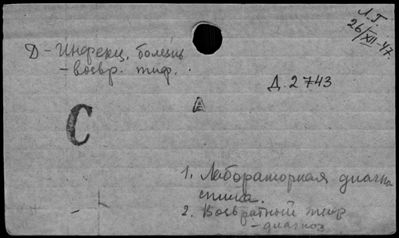 Л.Г.
26/XII-47.
Д - Инфекц. болезнь
- возвр. тиф.
Д. 2743
С
А
1. Лабораторная диагно
стика.
2. Возвратный тиф
- диагноз